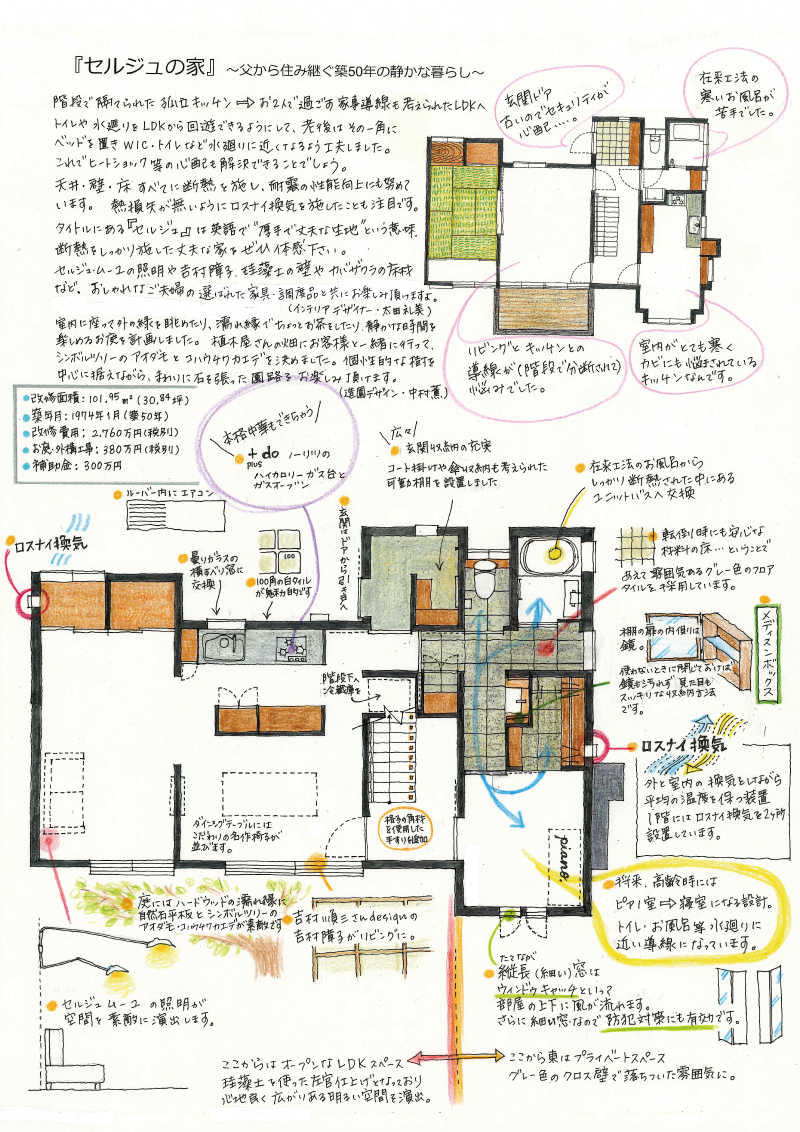 『セルジュの家』 ～父から住み継ぐ築50年の静かな暮らし～
階段で隔てられた孤立キッチン⇒お2人で過ごす家事導線も考えられたLDKへ
トイレや水廻りをLDKから回遊できるようにして、老後はその一角に
ベッドを置きWIC・トイレなど水廻りに近くなるよう工夫しました。
これでヒートショック等の心配も解決できることでしょう。
天井・壁・床すべてに断熱を施し、耐震の性能向上にも努めて
います。 熱損失が無いようにロスナイ換気を施したことも注目です。
タイトルにある『セルジュ』は英語で"厚手で丈夫な生地"という意味、
断熱をしっかり施した丈夫な家をぜひ体感下さい。
セルジュ・ムーユの照明や吉村障子、珪藻土の壁やカバザクラの床材
など、おしゃれなご夫婦の選ばれた家具・調度品と共にお楽しみ頂けますよ。
(インテリアデザイナー・太田礼美)
室内に座って外の緑を眺めたり、濡れ縁でちょっとお茶をしたり、静かな時間を
楽しめるお庭を計画しました。 植木屋さんの畑にお客様と一緒に行って、
シンボルツリーのアオダモとコハウチワカエデを決めました。個性的な樹を
中心に据えながら、まわりに石を張った園路をお楽しみ頂けます。
(造園デザイン・中村薫)
玄関ドア
古いのでセキュリティが
心配……。
在来工法の
寒いお風呂が
苦手でした。
リビングとキッチンとの
導線が(階段で分断されて)
悩みでした。
室内がとても寒く
カビにも悩まされている
キッチンなんです。
改修面積：101.95㎡(30.84坪)
築年月：1974年1月(築50年)
改修費用：2,760万円(税別)
お庭・外構工事：380万円(税別)
補助金：300万円
本格中華もできちゃう
+do ノーリツの
plus
ハイカロリーガス台と
ガスオーブン
広々
玄関収納の充実
コート掛けや傘収納も考えられた
可動棚を設置しました
在来工法のお風呂から
しっかり断熱された中にある
ユニットバスへ交換
ルーバー内にエアコン
ロスナイ換気
曇りガラスの
横すべり窓に
交換
100
100角の白タイル
が魅力的です
玄関はドアから引き戸へ
転倒時にも安心な
材料の床…ということで
あえて雰囲気あるグレー色のフロア
タイルを採用しています。
棚の扉の内側は
鏡。
メディスンボックス
使わないときに閉じておけば
鏡も汚れず見た目も
スッキリな収納方法
です。
階段下へ
冷蔵庫を
ロスナイ換気
外と室内の換気をしながら
平均の温度を保つ装置
1階にはロスナイ換気を2ヶ所
設置しています。
ダイニングテーブルには
こだわりの名作椅子が
並びます。
格子の角材
を使用した
手すりを追加
piano.
将来、高齢時には
ピアノ室⇒寝室になる設計。
トイレ・お風呂等水廻りに
近い導線になっています。
庭にはハードウッドの濡れ縁に
自然石平板とシンボルツリーの
アオダモ・コハウチワカエデが素敵です
吉村順三さんdesignの
吉村障子がリビングに。
たてなが
縦長(細い)窓は
ウィンドウキャッチといって
部屋の上下に風が流れます。
さらに細い窓なので防犯対策にも有効です。
セルジュムーユの照明が
空間を素敵に演出します。
ここからはオープンなLDKスペース
珪藻土を使った左官仕上げとなっており
心地良く広がりある明るい空間を演出。
ここから東はプライベートスペース
グレー色のクロス壁で落ちついた雰囲気に。